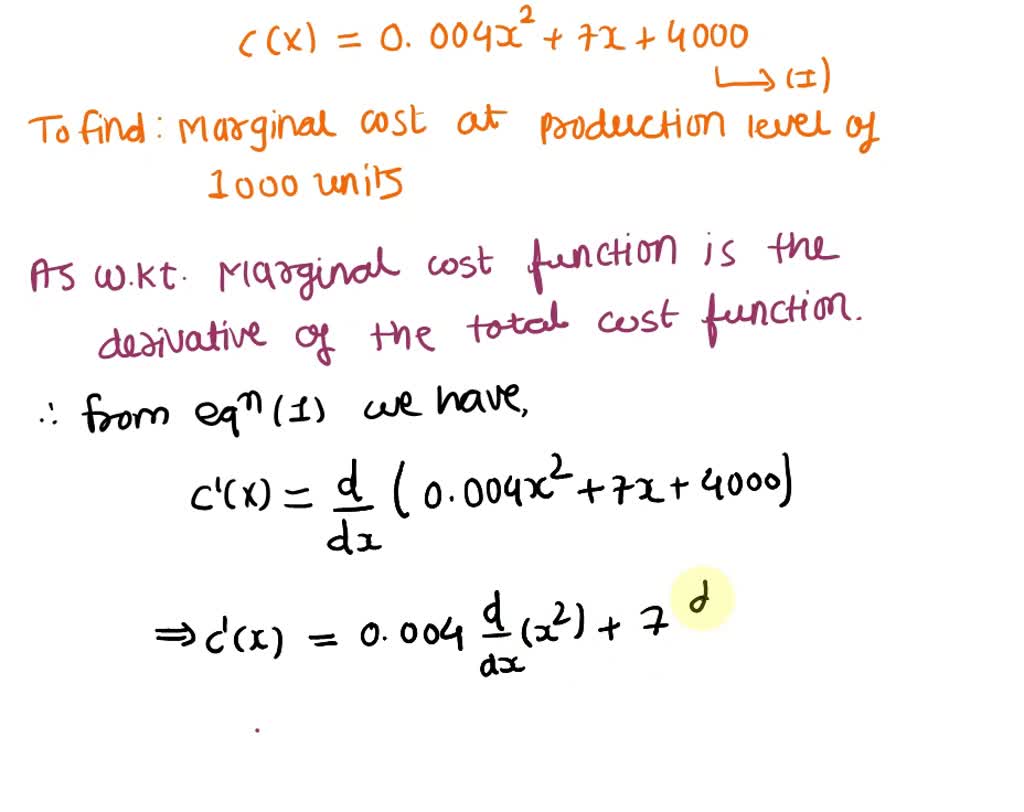 C(x) = 0.004x² + 7x + 4000
↳ (I)
To find: Marginal cost at production level of
1000 units
As w.k.t. Marginal cost function is the
derivative of the total cost function.
∴ from eqⁿ (1) we have,
C'(x) = d/dx (0.004x² + 7x + 4000)
⇒ C'(x) = 0.004 d/dx (x²) + 7 d